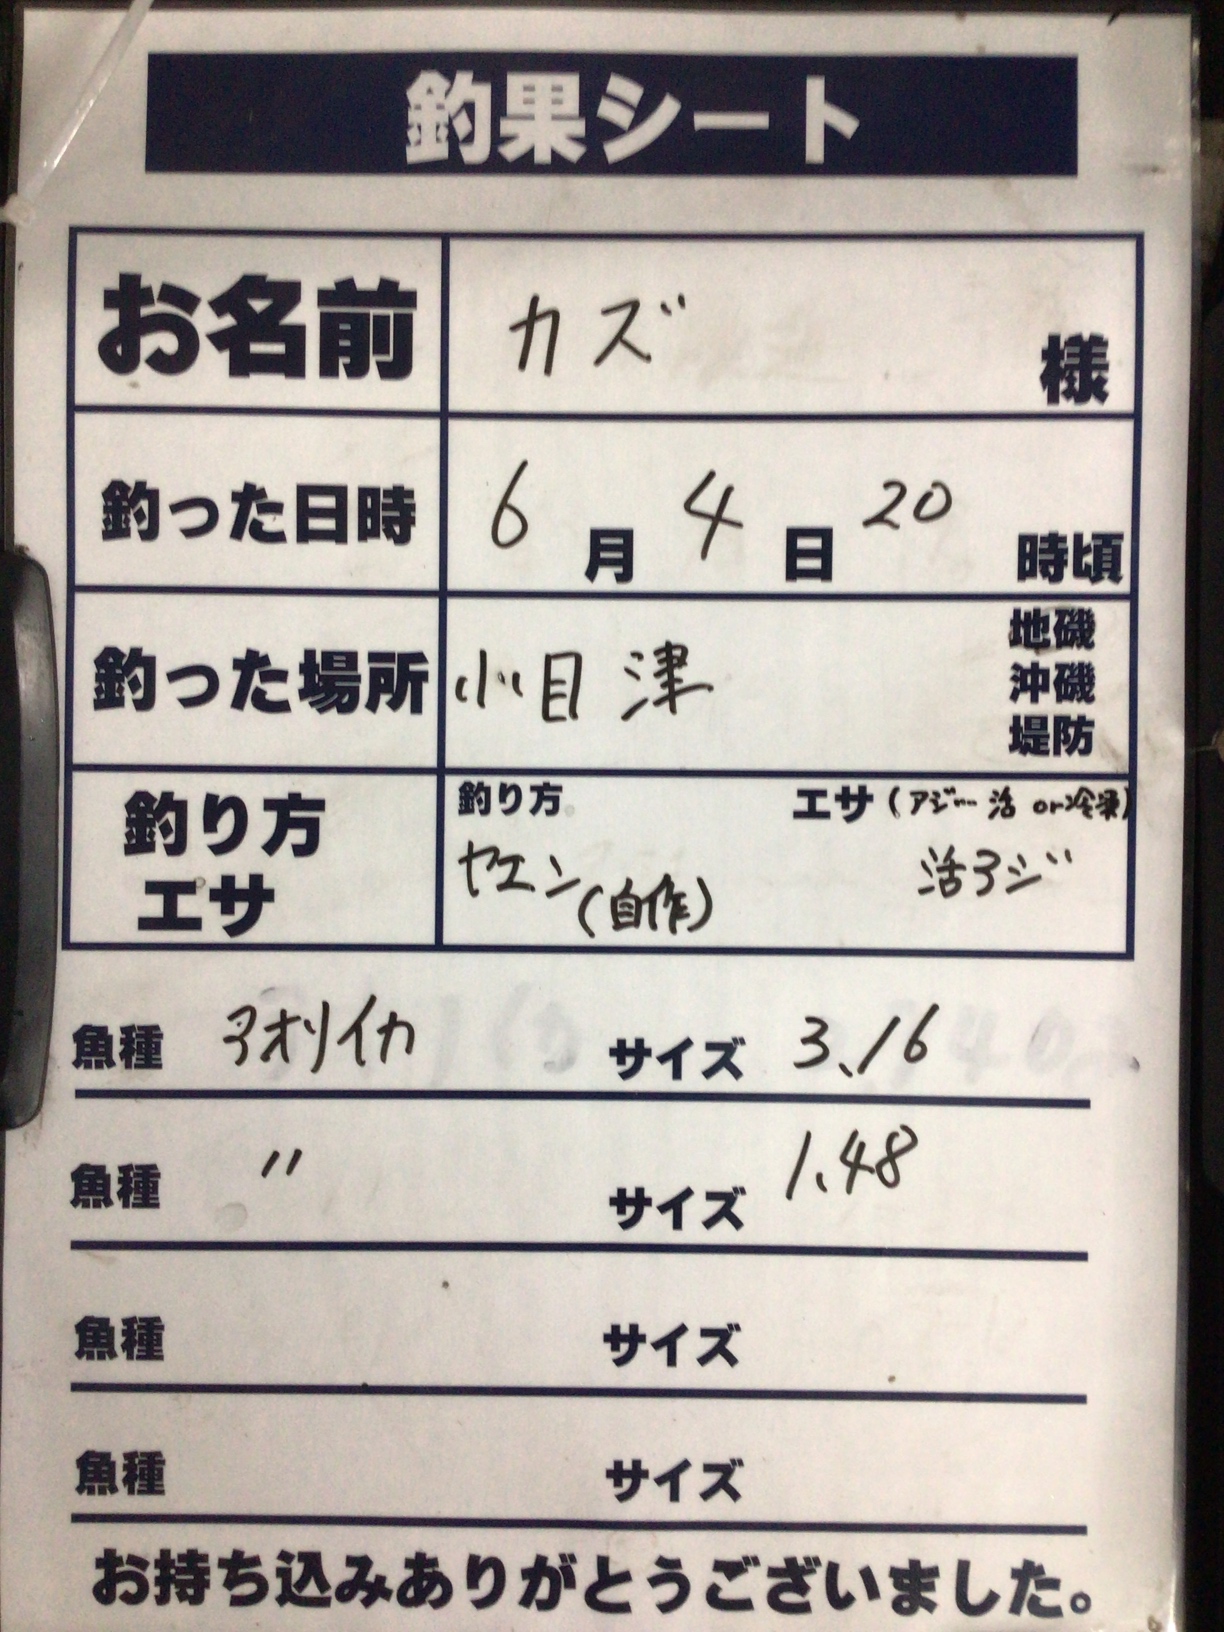 釣果シート
お名前 カズ 様
釣った日時 6月4日20時頃
釣った場所 小目津 地磯 沖磯 堤防
釣り方 エサ
釣り方 エサ(アジ…活 or冷凍)
ヤエン(自作) 活アジ
魚種 アオリイカ サイズ 3.16
魚種 〃 サイズ 1.48
魚種 サイズ
魚種 サイズ
お持ち込みありがとうございました。